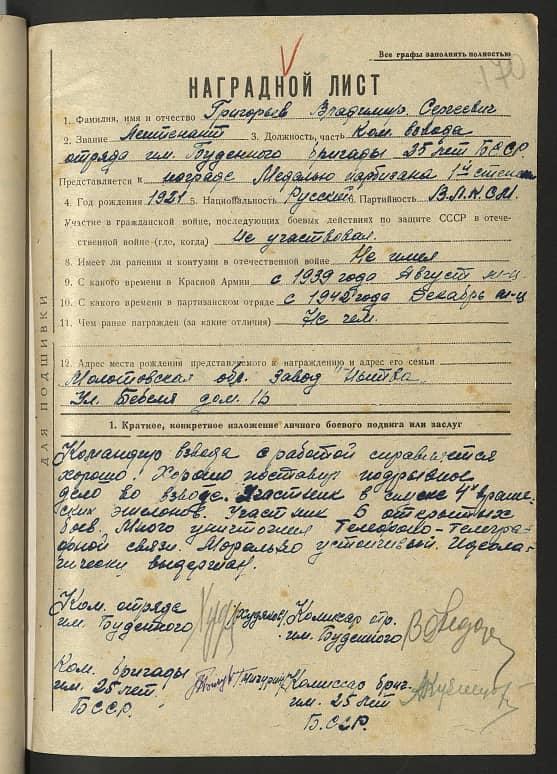 Все графы заполнять полностью
170
НАГРАДНОЙ ЛИСТ
1. Фамилия, имя и отчество Григорьев Владимир Сергеевич
2. Звание Лейтенант 3. Должность, часть Ком. взвода
отряда им. Буденного бригады 25 лет БССР.
Представляется к награде Медалью партизана 1й степени
4. Год рождения 1921 5. Национальность Русский 6. Партийность В.Л.К.С.М.
Участие в гражданской войне, последующих боевых действиях по защите СССР в отече-
ственной войне (где, когда) Не участвовал.
8. Имеет ли ранения и контузии в отечественной войне Не имел
9. С какого времени в Красной Армии с 1939 года Август м-ц
10. С какого времени в партизанском отряде с 1942 года Декабрь м-ц
11. Чем ранее награжден (за какие отличия) Не чем.
12. Адрес места рождения представляемого к награждению и адрес его семьи
Молотовская обл. Завод "Нытва"
Ул. Бебеля дом. 16
ДЛЯ ПОДШИВКИ
1. Краткое, конкретное изложение личного боевого подвига или заслуг
Командир взвода с работой справляется
хорошо. Хорошо поставил подрывное
дело во взводе. Участник в спуске 4х враже-
ских эшелонов. Участник 6 открытых
боев. Много уничтожил Телефоно-Телегра-
фной связи. Морально устойчивый. Идеоло-
гически выдержан.
Ком. отряда
им. Буденного /Худяков/
Комиссар отр.
им. Буденного
Ком. бригады
им. 25 лет
Б.С.С.Р.
Комиссар бриг.
им. 25 лет
Б.С.С.Р.